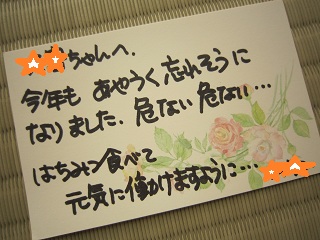 ちゃんへ.
今年も あやうく忘れそうに
なりました. 危ない 危ない…
はちみつ食べて
元気に働けますように…